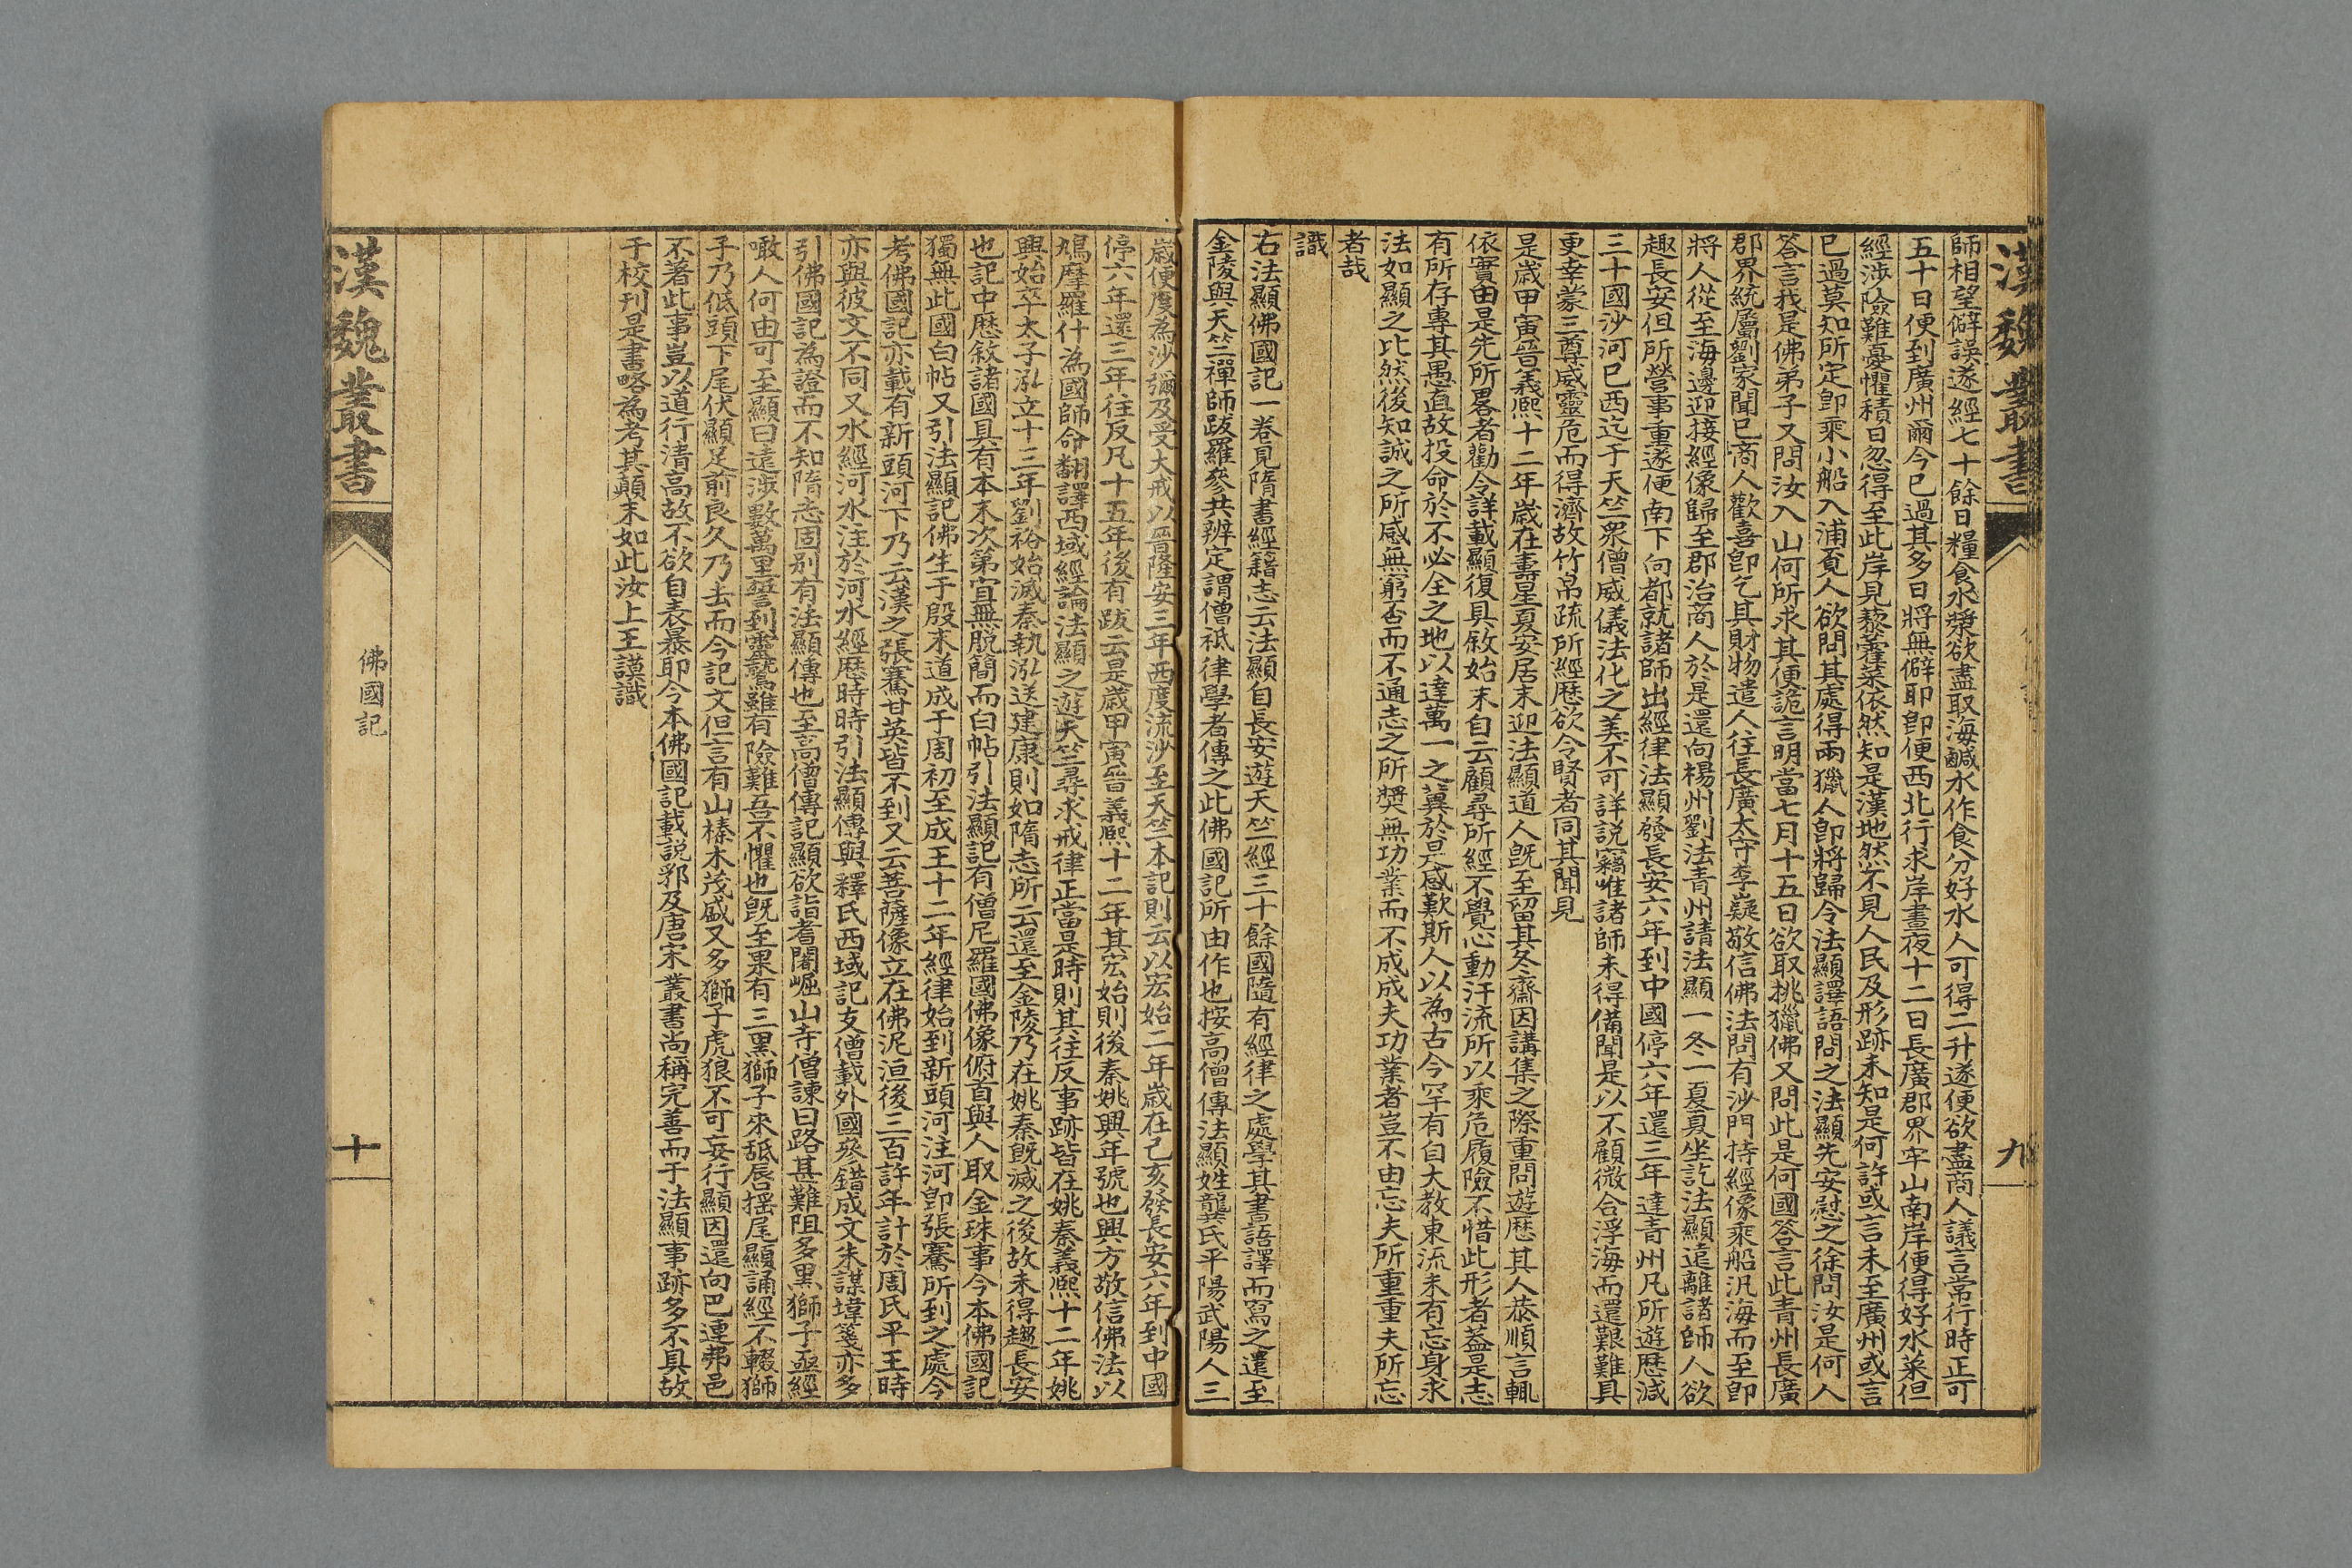 漢魏叢書
九
師相望僻誤遂經七十餘日糧食水漿欲盡取海鹹水作食分好水人可得二升遂便欲盡商人議言常行時正可
五十日便到廣州爾今已過其多日將無僻耶卽便西北行求岸晝夜十二日長廣郡界牢山南岸便得好水菜但
經涉險難憂懼積日忽得至此岸見藜藿菜依然知是漢地然不見人民及形跡未知是何許或言未至廣州或言
已過莫知所定卽乘小船入浦覓人欲問其處得兩獵人卽將歸令法顯譯語問之法顯先安慰之徐問汝是何人
答言我是佛弟子又問汝入山何所求其便詭言明當七月十五日欲取桃獵佛又問此是何國答言此青州長廣
郡界統屬劉家聞已商人歡喜卽乞其財物遣人往長廣太守李嶷敬信佛法聞有沙門持經像乘船汎海而至卽
將人從至海邊迎接經像歸至郡治商人於是還向楊州劉法青州請法顯一冬一夏夏坐訖法顯遠離諸師人欲
趣長安但所營事重遂便南下向都就諸師出經律法顯發長安六年到中國停六年還三年達青州凡所遊歷減
三十國沙河已西迄于天竺衆僧威儀法化之美不可詳説竊惟諸師未得備聞是以不顧微合浮海而還艱難具
更幸蒙三尊威靈危而得濟故竹帛疏所經歷欲令賢者同其聞見
是歲甲寅晉義熙十二年歲在壽星夏安居末迎法顯道人旣至留其冬齋因講集之際重問遊歷其人恭順言輒
依實由是先所畧者勸令詳載顯復具敘始末自云顧尋所經不覺心動汗流所以乘危履險不惜此形者葢是志
有所存專其愚直故投命於不必全之地以達萬一之冀於是感歎斯人以為古今罕有自大教東流未有忘身求
法如顯之比然後知誠之所感無窮否而不通志之所奬無功業而不成成夫功業者豈不由忘夫所重重夫所忘
者哉
識
右法顯佛國記一卷見隋書經籍志云法顯自長安遊天竺經三十餘國隨有經律之處學其書語譯而寫之還至
金陵與天竺禪師跋羅參共辨定謂僧祗律學者傳之此佛國記所由作也按高僧傳法顯姓龔氏平陽武陽人三
歲便度為沙彌及受大戒以晉隆安三年西度流沙至天竺本記則云以宏始二年歲在己亥發長安六年到中國
停六年還三年往反凡十五年後有跋云是歲甲寅晉義熙十二年其宏始則後秦姚興年號也興方敬信佛法以
鳩摩羅什為國師命翻譯西域經論法顯之遊天竺尋求戒律正當是時則其往反事跡皆在姚秦義熙十二年姚
興始卒太子泓立十三年劉裕始滅秦執泓送建康則如隋志所云還至金陵乃在姚秦旣滅之後故未得趨長安
也記中歷敘諸國具有本末次第宜無脱簡而白帖引法顯記有僧尼羅國佛像俯首與人取金珠事今本佛國記
獨無此國白帖又引法顯記佛生于殷末道成于周初至成王十二年經律始到新頭河注河卽張騫所到之處今
考佛國記亦載有新頭河下乃云漢之張騫甘英皆不到又云菩薩像立在佛泥洹後三百許年計於周氏平王時
亦與彼文不同又水經河水注於河水經歷時時引法顯傳與釋氏西域記支僧載外國參錯成文朱謀㙔箋亦多
引佛國記為證而不知隋志固别有法顯傳也至高僧傳記顯欲詣耆闍崛山寺僧諫曰路甚難阻多黑獅子亟經
噉人何由可至顯曰遠涉數萬里誓到靈鷲雖有險難吾不懼也旣至果有三黑獅子來舐唇揺尾顯誦經不輟獅
子乃低頭下尾伏顯足前良久乃去而今記文但言有山榛木茂盛又多獅子虎狼不可妄行顯因還向巴連弗邑
不著此事豈以道行清高故不欲自表暴耶今本佛國記載説郛及唐宋叢書尚稱完善而于法顯事跡多不具故
于校刊是書略為考其顛末如此汝上王謨識
漢魏叢書
佛國記
十